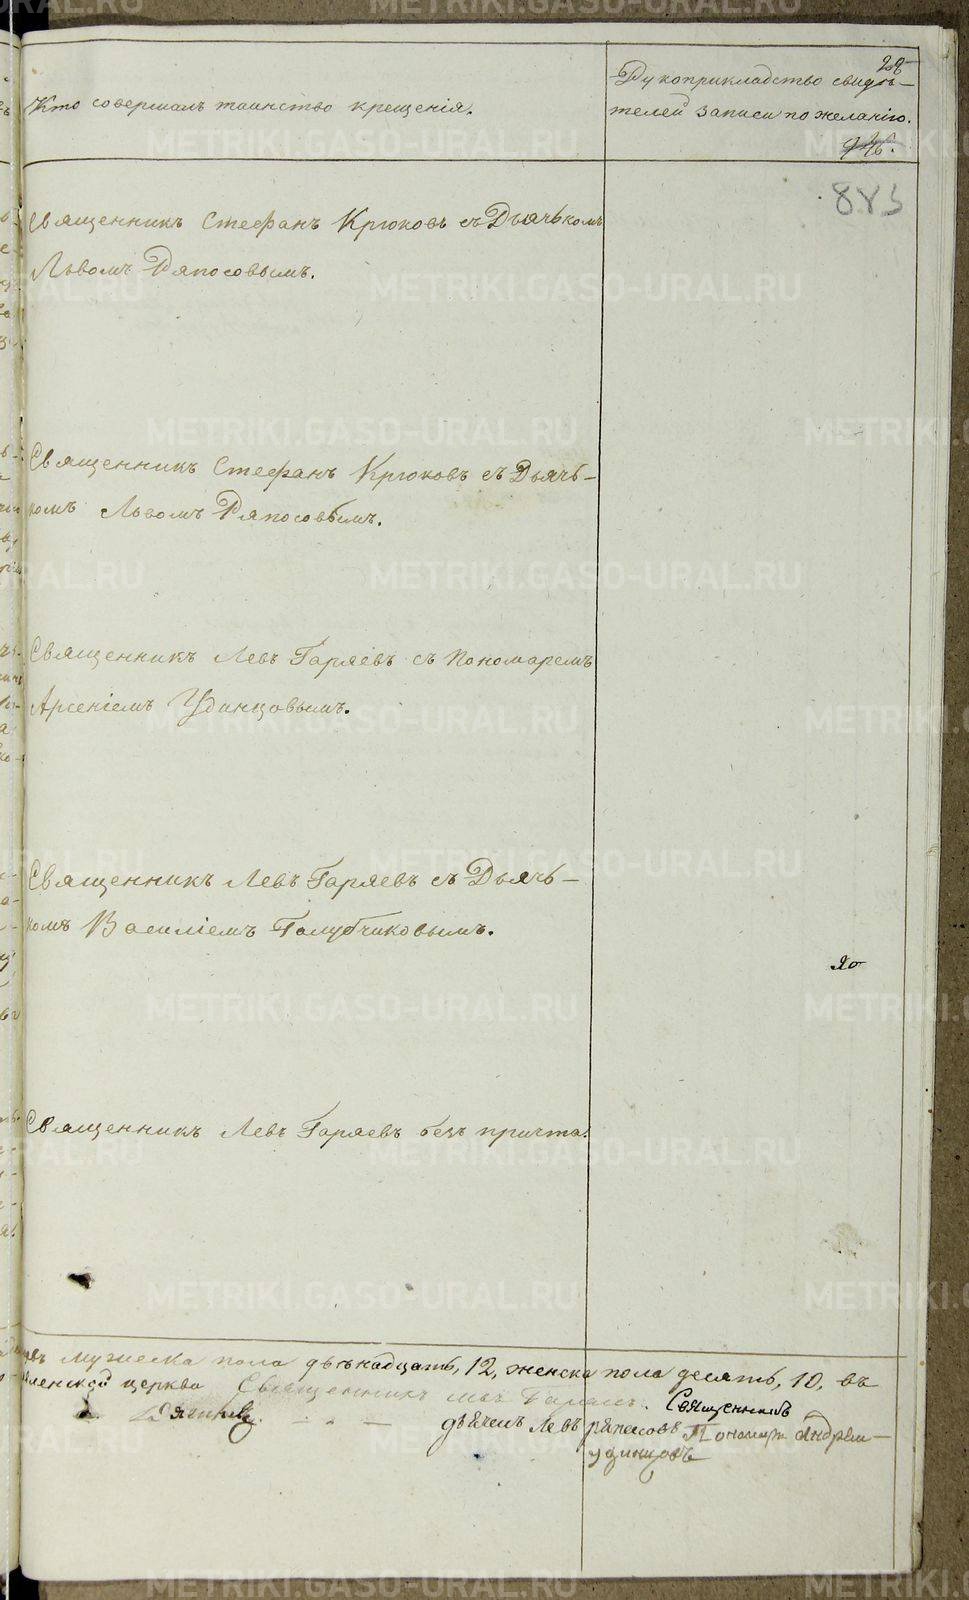 28
Кто совершалъ таинство крещенія.
Рукоприкладство свидѣ-
телей записи по желанію.
883
Священникъ Стефанъ Крюковъ съ Дьячькомъ
Львомъ Ряпосовымъ.
Священникъ Стефанъ Крюковъ съ Дьячь-
комъ Львомъ Ряпосовымъ.
Священникъ Левъ Гаряевъ съ Пономаремъ
Арсеніемъ Удинцовымъ.
Священникъ Левъ Гаряевъ съ Дьячь-
комъ Василіемъ Голубчиковымъ.
Священникъ Левъ Гаряевъ безъ причта.
мужеска пола двѣнадцать, 12, женска пола десять, 10, въ
церкви Священникъ Левъ Священникъ
дьячекъ Левъ Пономарь Андреи
удинцовъ
METRIKI.GASO-URAL.RU